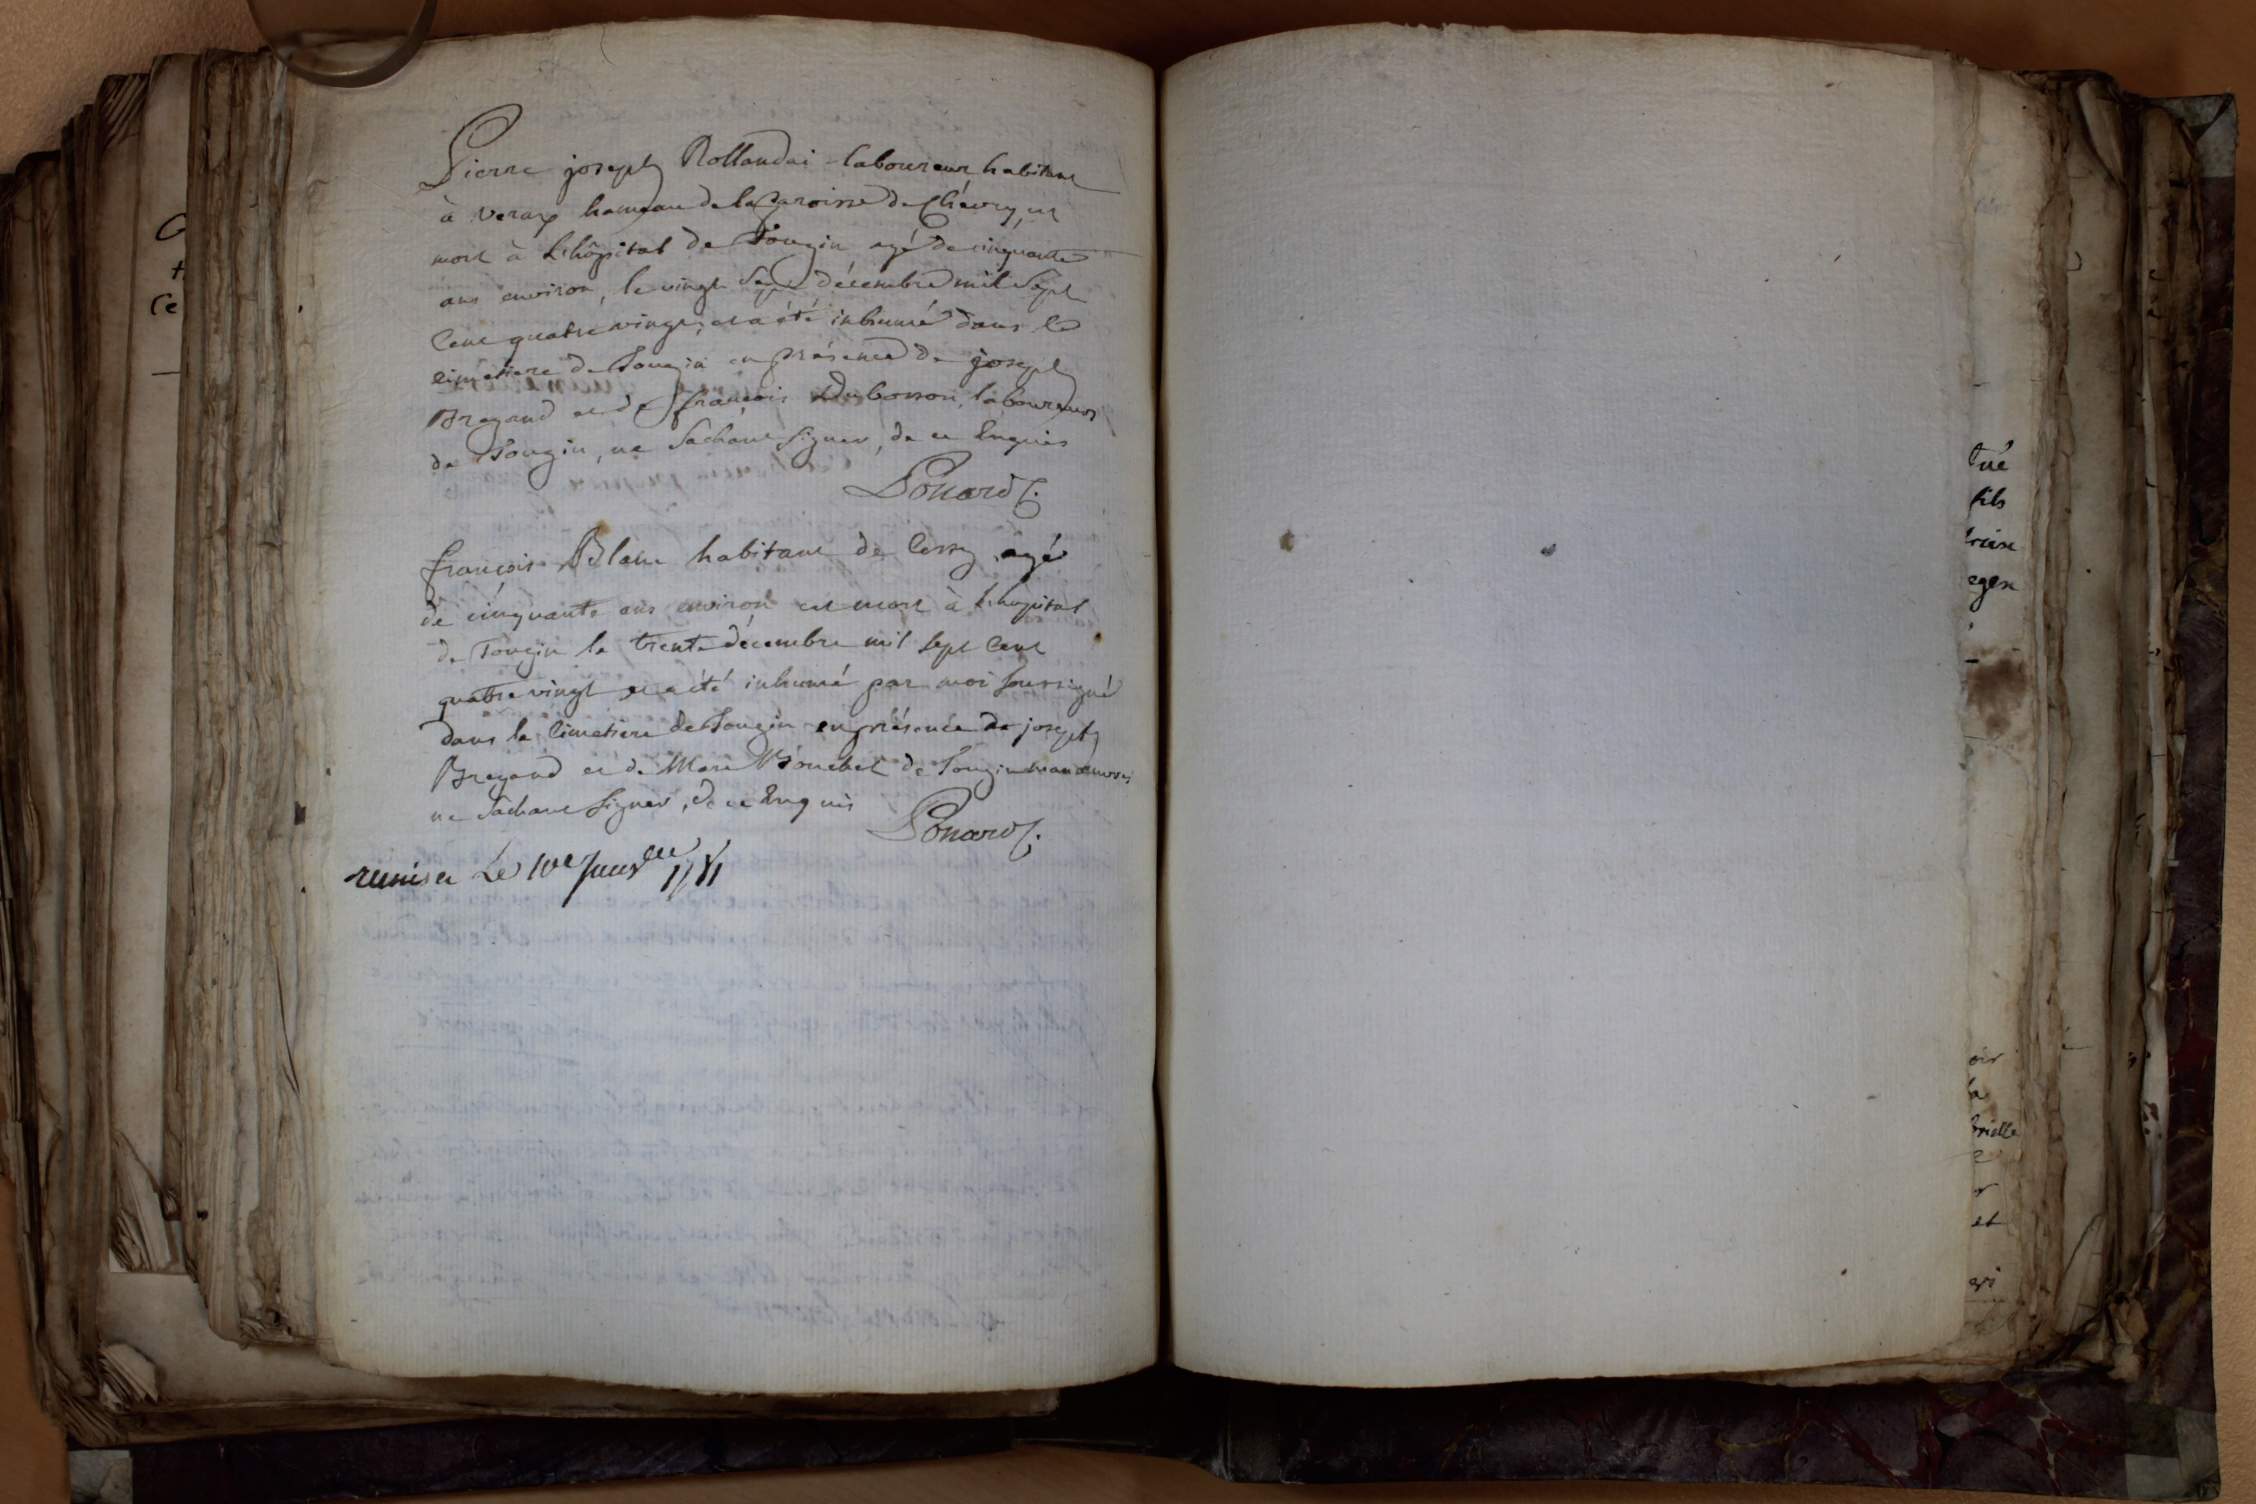 Pierre joseph Rollandai laboureur habitant
à Verax hameau de la paroisse de Chévry, est
mort à L'hôpital de Tougin agé de cinquante
ans environ, le vingt Sept décembre mil Sept
Cent quatre vingt, et a été inhumé dans le
cimetiere de Tougin en présence de joseph
Bregand et de françois Dubosson, laboureurs
de Tougin, ne Sachant signer, de ce Enquis
Ponard C.
françois Blanc habitant de Cessy agé
de cinquante ans environ est mort à L'hopital
de Tougin le trente décembre mil sept Cent
quatre vingt et a été inhumé par moi soussigné
dans le Cimetiere de Tougin en présence de joseph
Bregand et de Marc Bouchet de Tougin manoeuvres
ne Sachant signer, de ce Enquis
Ponard C.
remis Le 10e 1781
tué
fils
et